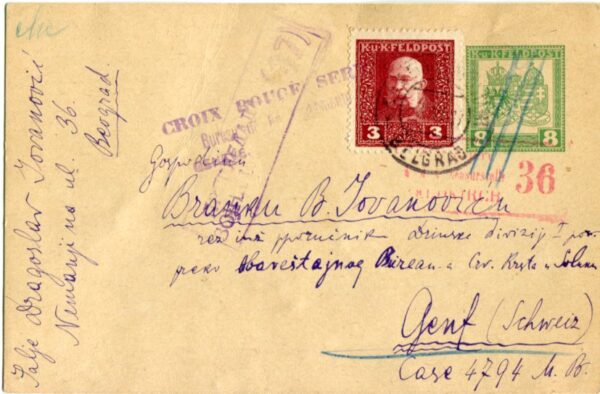 Šalje Dragoslav Jovanović
Nemanjina ul. 36.
Beograd.
K.u.K.FELDPOST
3 3
K.u.K.FELDPOST
8 8
BELGRAD
CROIX ROUGE SER
36
Gospodinu
Branku B. Jovanoviću
rez. poručnik Drinske divizije I poz.
preko Obaveštajnog Bureau-a Crv. Krsta u Solunu
Genf (Schweiz)
Case 4794 M. B.